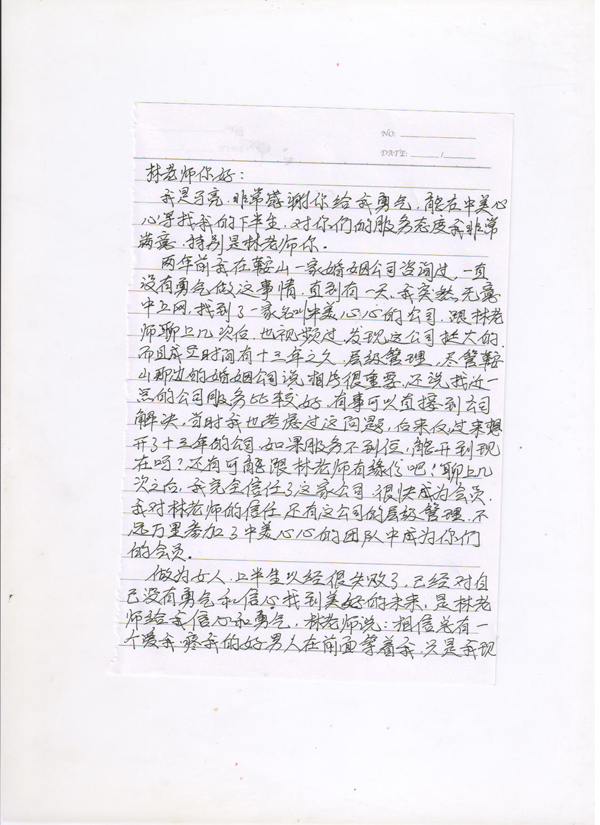 NO:
DATE: /
林老师你好：
我是于亮，非常感谢你给我勇气，能在中美心
心寻找我的下半生，对你们的服务态度我非常
满意，特别是林老师你。
两年前我在鞍山一家婚姻公司咨询过，一直
没有勇气做这事情，直到有一天，我突然无意
中上网，找到了一家名叫中美心心的公司，跟林老
师聊上几次后，也视频过，发现这公司挺大的，
而且成立时间有十三年之久，层级管理，尽管鞍
山那边的婚姻公司说相片很重要，还说找近一
点的公司服务比较好，有事可以直接到公司
解决，当时我也考虑过这问题，后来反过来想
开了十三年的公司，如果服务不到位，能开到现
在吗？还有可能跟林老师有缘份吧！聊上几
次之后，我完全信任了这家公司，很快成为会员，
我对林老师的信任，还有这公司的层级管理，不
远万里参加了中美心心的团队中成为你们
的会员。
做为女人，上半生以经很失败了，已经对自
己没有勇气和信心找到美好的未来，是林老
师给我信心和勇气，林老师说：相信总有一
个爱我疼我的好男人在前面等着我，只是我现